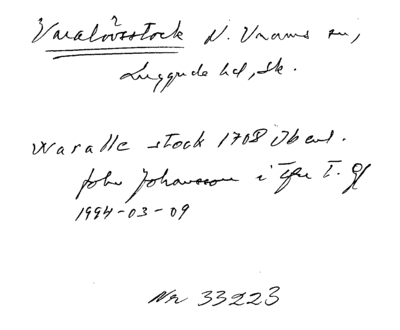 Vvalövsstock N. Vrams sn,
Luggude hd, Sk.
Waralle stock 1708
John Johansson i
1994-03-09
Nr 33223